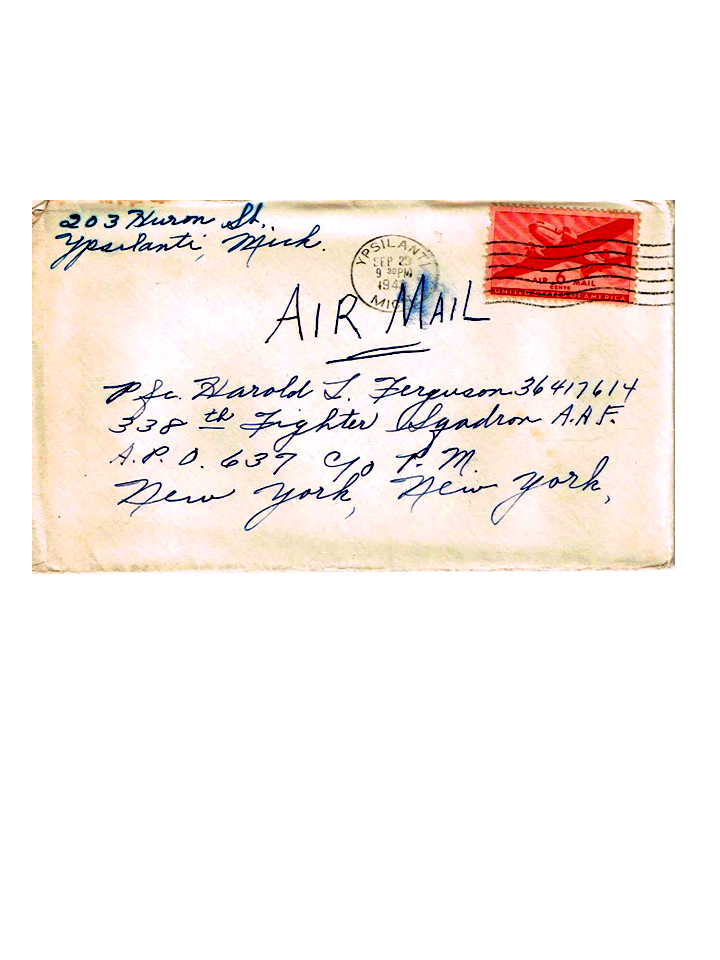 203 Huron St.
Ypsilanti, Mich.
YPSILANTI
SEP 2
9 30PM
194
MICH
AIR 6 MAIL
CENTS
UNITED STATES OF AMERICA
AIR MAIL
Pfc. Harold L. Ferguson 36417614
338 th Fighter Sqadron A.A.F.
A.P.O. 637 c/o P.M.
New York, New York,